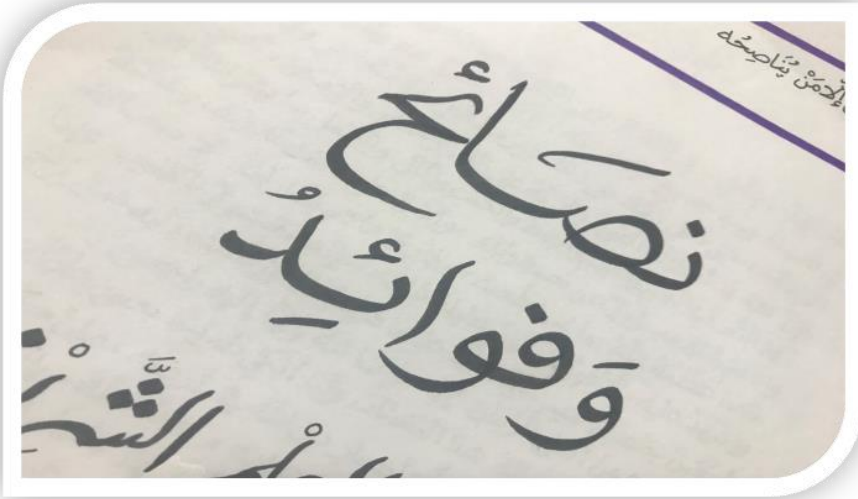 إِلَّا مَنْ يُنَاصِحُه
نصَائح
وَفوائِدُ